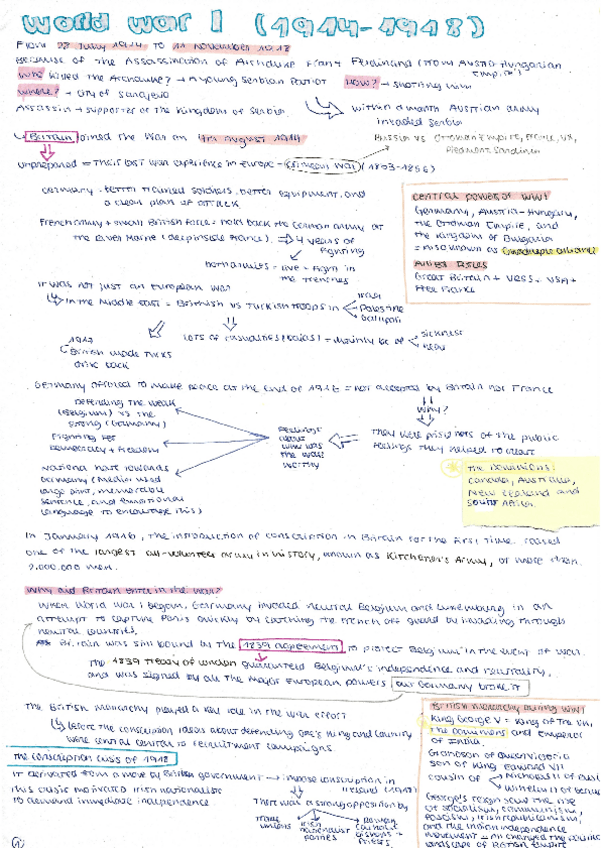 World War I (1914-1918)
From 28 July 1914 to 11 November 1918
Because of the Assassination of Archduke Franz Ferdinand (from Austro-Hungarian Empire)
Who killed the Archduke? → A young Serbian Patriot How? → shooting him
Where? → City of Sarajevo
Assassin → supporter of the Kingdom of Serbia
within a month Austrian army
invaded Serbia
Britain joined the War on 4th August 1914
Russia vs Ottoman Empire, France, UK,
Piedmont Sardinia
Unprepared = Their last war experience in Europe = Crimean War (1853-1856)
Germany = better trained soldiers, better equipment, and
a clean plan of attack
French army + small British force = holds back the German army at
the River Marne (deep inside France). → 4 years of
fighting
both armies = live + fight in
the trenches
Central powers of WW1
Germany, Austria-Hungary,
the Ottoman Empire, and
the Kingdom of Bulgaria
= also known as Quadruple alliance
Allied
Great Britain + + USA +
It was not just an European war
In the Middle East = British vs Turkish troops in
Palestine
Gallipoli
Lots of casualties = mainly be of
sickness
heat
1917
British made Turks
back
Germany offered to make peace at the end of 1916 = not accepted by Britain nor France
Why?
They were prisoners of the public
feelings they helped to create
feelings
about
who was
the war
worthy
Defending the weak
(Belgium) vs the
strong (Germany)
Fighting for
democracy + freedom
National hate towards
Germany (media used
large print, memorable
sentence, and emotional
language to encourage this)
The Dominions:
Canada, Australia,
New Zealand and
South Africa.
In January 1916, the introduction of conscription in Britain for the first time. raised
one of the largest all-volunteer army in history, known as Kitchener's Army, of more than
2.000.000 men.
Why did Britain enter in the war?
When World War I began, Germany invaded neutral Belgium and Luxembourg in an
attempt to capture Paris quickly by catching the French off guard by invading through
neutral countries.
Britain was still bound by the 1839 agreement to protect Belgium in the event of war.
The 1839 Treaty of London guaranteed Belgium's independence and neutrality,
and was signed by all the major European powers but Germany broke it
The British monarchy played a key role in the war effort
Before the conscription ideas about defending one's King and country
were central to recruitment campaigns
The conscription crisis of 1918
It derivated from a move by British government → impose conscription in
Ireland
This crisis motivated Irish nationalists
to demand immediate independence.
There was a strong opposition by
trade
unions
Irish
nationalist
parties
Roman
Catholic
bishops +
priests
British monarchy during WW1
King George V = King of the UK,
The dominions and emperor
of India.
Grandson of Queen Victoria
son of King Edward VII
cousin of
Nicholas II of
Wilhelm II of
George's reign saw the rise
of socialism, communism,
fascism, Irish republicanism,
and the Indian independence
movement = all changed the
landscape of British Empire
1